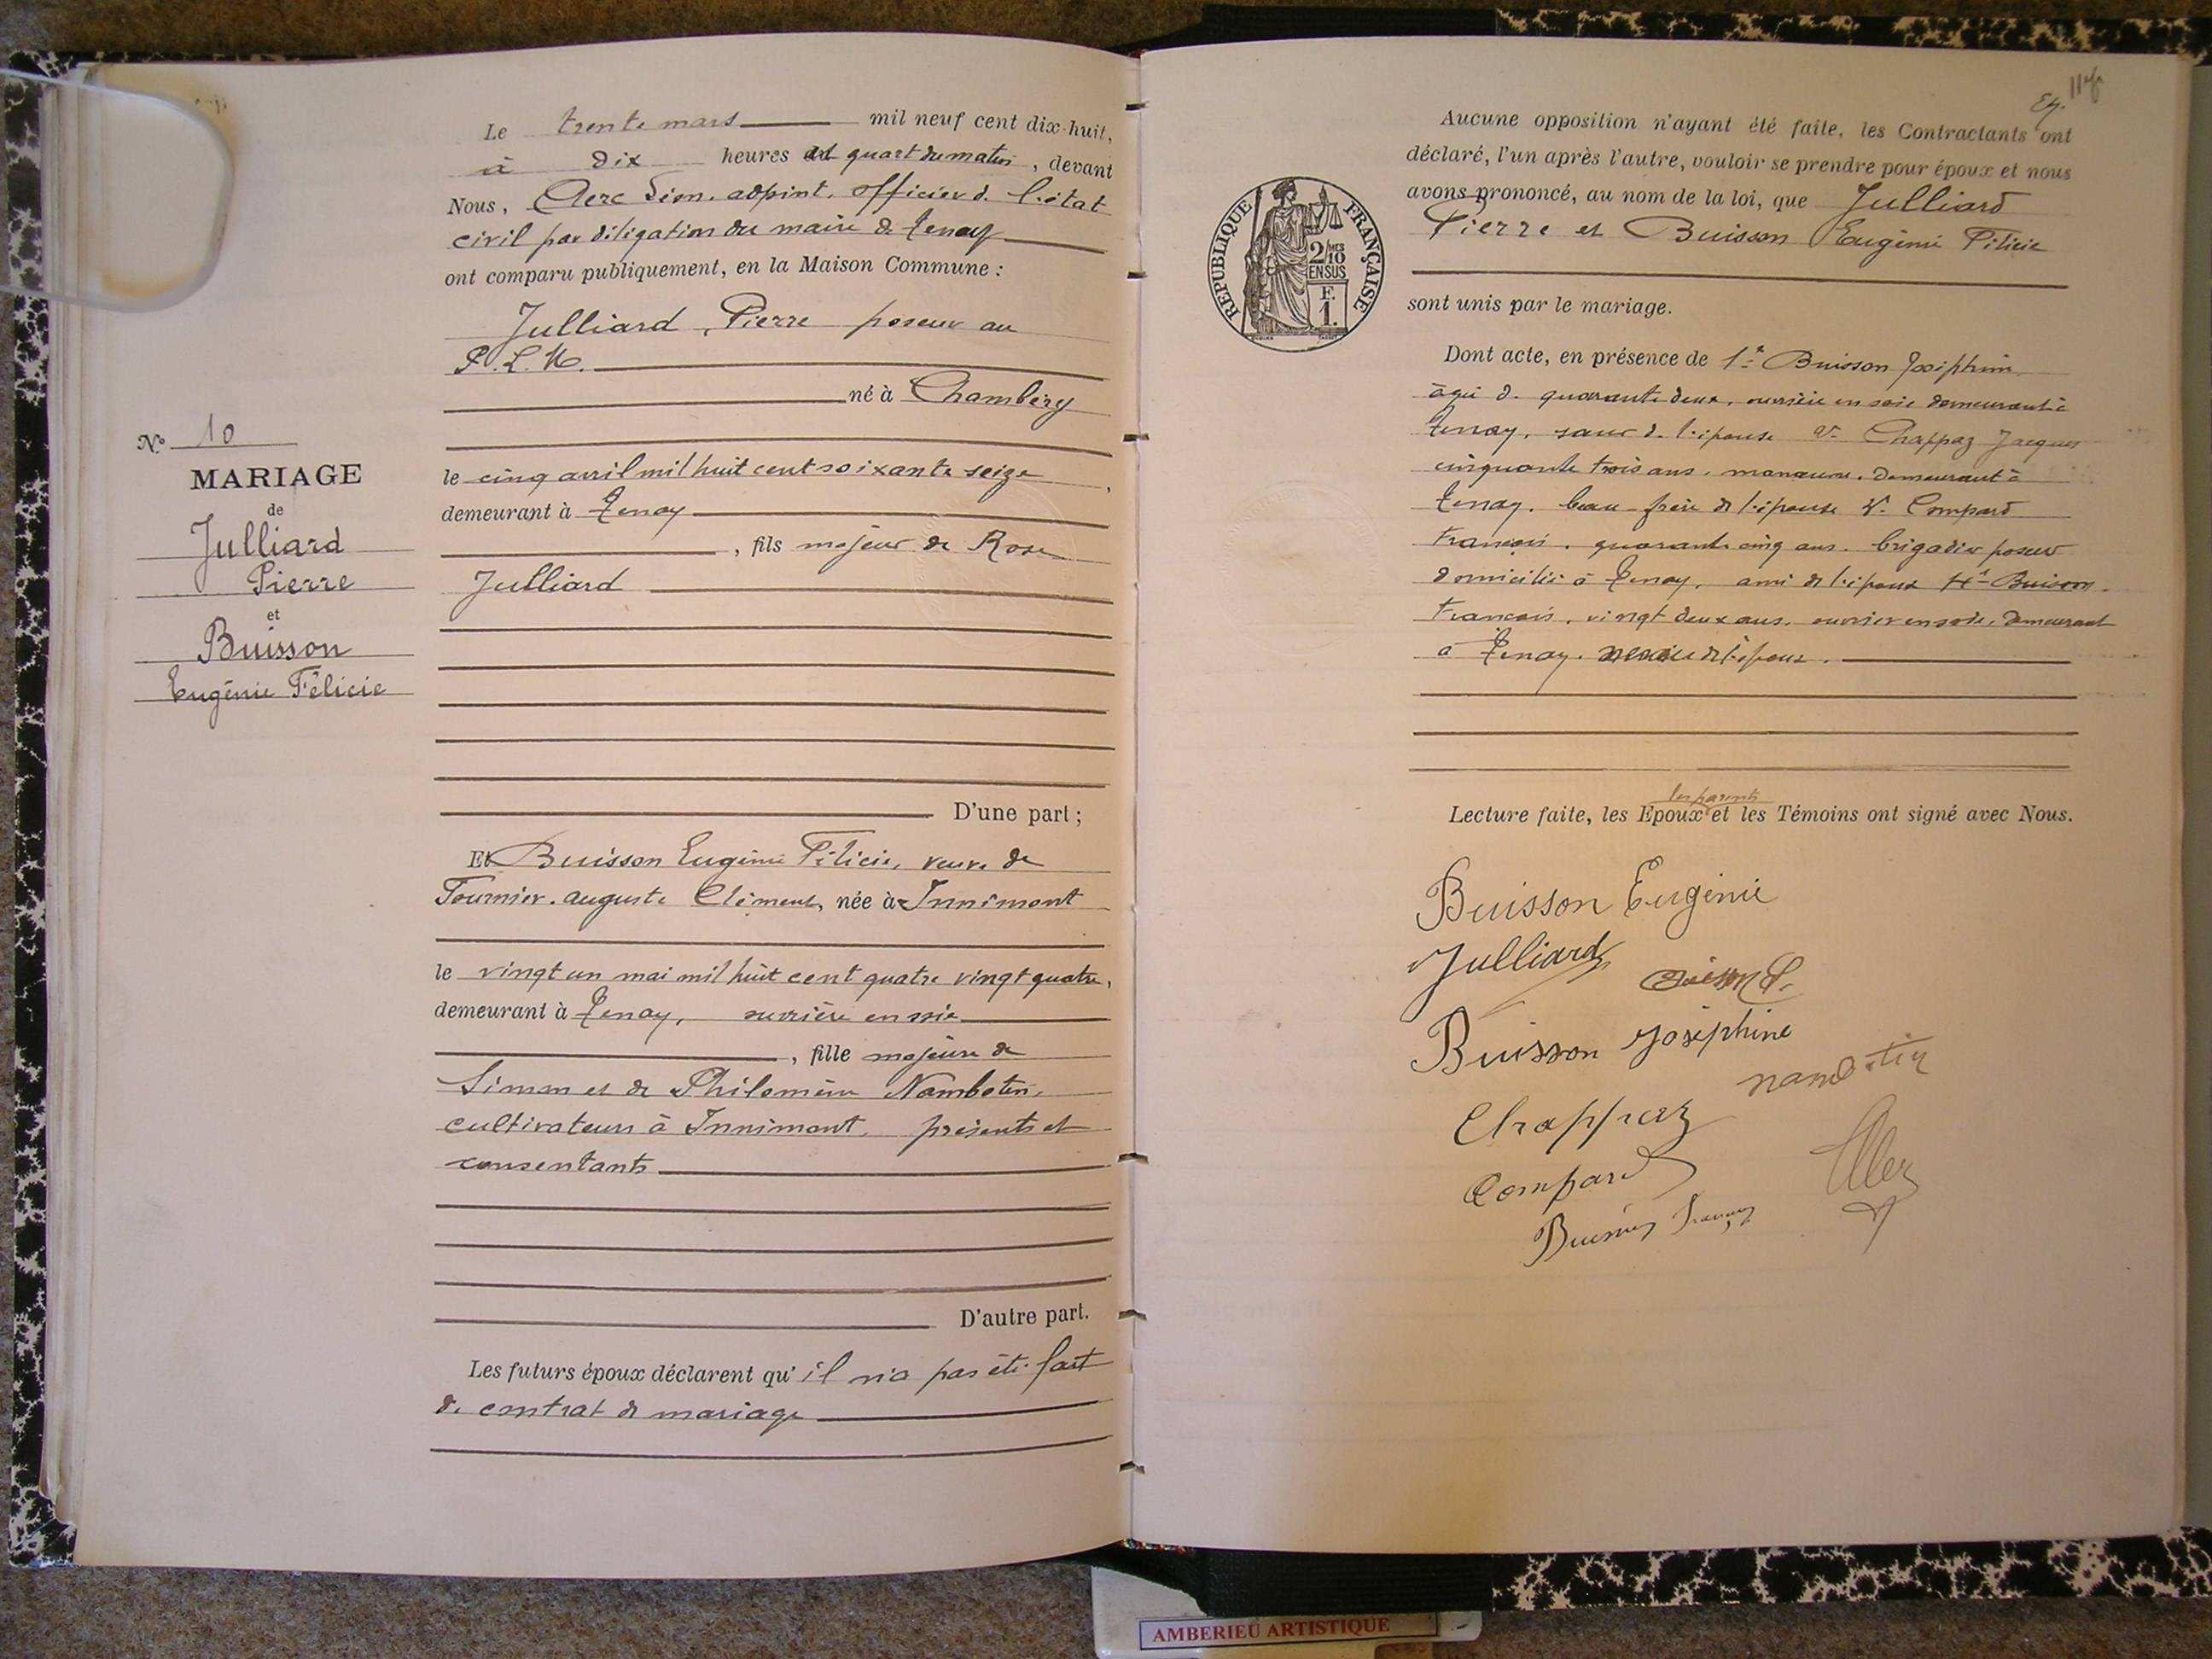 Le trente mars mil neuf cent dix-huit,
à dix heures et quart du matin, devant
Nous, Clerc Léon, adjoint, officier d. l'état
civil par délégation du maire de Tenay
ont comparu publiquement, en la Maison Commune :
Julliard, Pierre poseur au
P.L.M.
né à Chambéry
le cinq avril mil huit cent soixante seize,
demeurant à Tenay
, fils majeur de Rose
Julliard
D'une part ;
Et Buisson Eugénie Félicie, veuve de
Tournier. auguste Clément, née à Innimont
le vingt un mai mil huit cent quatre vingt quatre,
demeurant à Tenay, ouvrière en soie
, fille majeure de
Simon et de Philomène Nambotin,
cultivateurs à Innimont, présents et
consentants
D'autre part.
Les futurs époux déclarent qu'il n'a pas été fait
de contrat de mariage
No 10
MARIAGE
de
Julliard
Pierre
et
Buisson
Eugénie Félicie
Aucune opposition n'ayant été faite, les Contractants ont
déclaré, l'un après l'autre, vouloir se prendre pour époux et nous
avons prononcé, au nom de la loi, que Julliard
Pierre et Buisson Eugénie Félicie
sont unis par le mariage.
RÉPUBLIQUE FRANÇAISE
2/10 MES
EN SUS
F.
1.
Dont acte, en présence de 1° Buisson Joséphine
âgée d. quarante deux, ouvrière en soie demeurant à
Tenay, sœur d. l'épouse 2° Chappaz Jacques
cinquante trois ans, manœuvre, demeurant à
Tenay, beau-frère de l'épouse 3° Compard
François, quarante cinq ans, brigadier poseur
domicilié à Tenay, ami de l'époux 4° Buisson
François, vingt deux ans, ouvrier en soie, demeurant
à Tenay. de l'épouse.
les parents
Lecture faite, les Epoux et les Témoins ont signé avec Nous.
Buisson Eugénie
Julliard
Buisson Joséphine
nambotin
Chappaz
Compard
Buisson François
AMBERIEU ARTISTIQUE